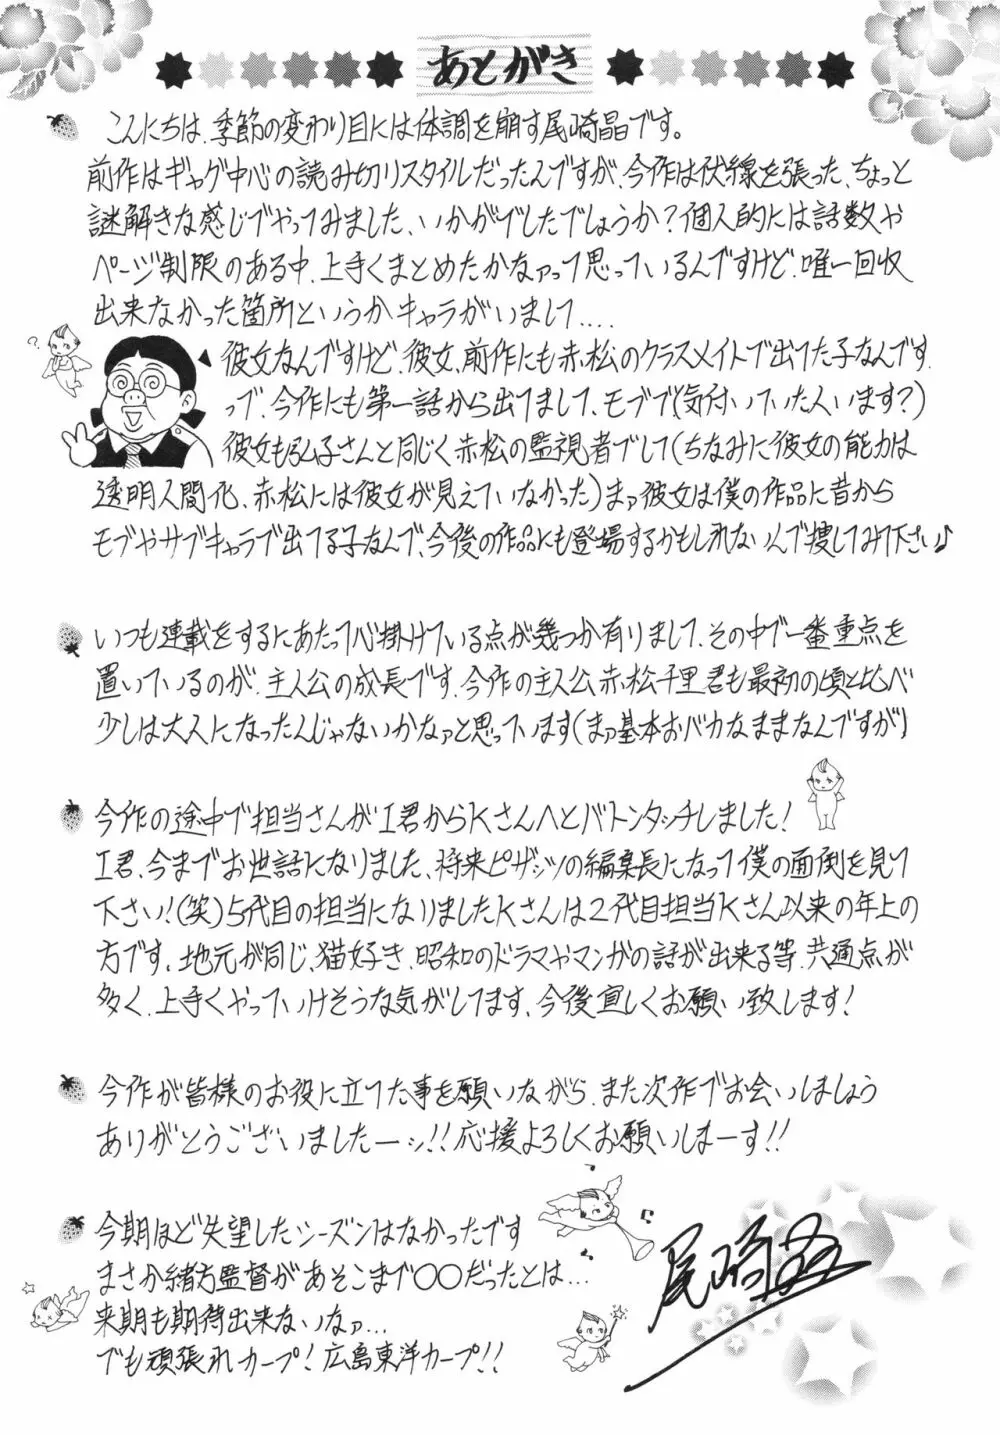 あとがき
こんにちは、季節の変わり目には体調を崩す尾崎晶です。
前作はギャグ中心の読み切りスタイルだったんですが、今作は伏線を張った、ちょっと
謎解きな感じでやってみました、いかがでしたでしょうか?個人的には話数や
ページ制限のある中、上手くまとめたかなァって思っているんですけど、唯一回収
出来なかった箇所というかキャラがいまして....
彼女なんですけど、彼女、前作にも赤松のクラスメイトで出てた子なんです、
っで、今作にも第一話から出てまして、モブで(気付いていた人います?)
彼女も弘子さんと同じく赤松の監視者でして(ちなみに彼女の能力は
透明人間化、赤松には彼女が見えていなかった)まァ彼女は僕の作品に昔から
モブやサブキャラで出てる子なんで、今後の作品にも登場するかもしれないんで捜してみて下さい♪
いつも連載をするにあたって心掛けている点が幾つか有りまして、その中で一番重点を
置いているのが、主人公の成長です、今作の主人公、赤松千里君も最初の頃と比べ
少しは大人になったんじゃないかなァと思っています(まァ基本おバカなままなんですが)
今作の途中で担当さんがI君からKさんへとバトンタッチしました!
I君、今までお世話になりました、将来ピザッツの編集長になって僕の面倒を見て
下さい!(笑)5代目の担当になりましたKさんは2代目担当Kさん以来の年上の
方です、地元が同じ、猫好き、昭和のドラマやマンガの話が出来る等、共通点が
多く、上手くやっていけそうな気がしてます、今後宜しくお願い致します!
今作が皆様のお役に立てた事を願いながら、また次作でお会いしましょう
ありがとうございましたーッ!!応援よろしくお願いしまーす!!
今期ほど失望したシーズンはなかったです
まさか緒方監督があそこまで〇〇だったとは...
来期も期待出来ないなァ...
でも頑張れカープ!広島東洋カープ!!
尾崎晶